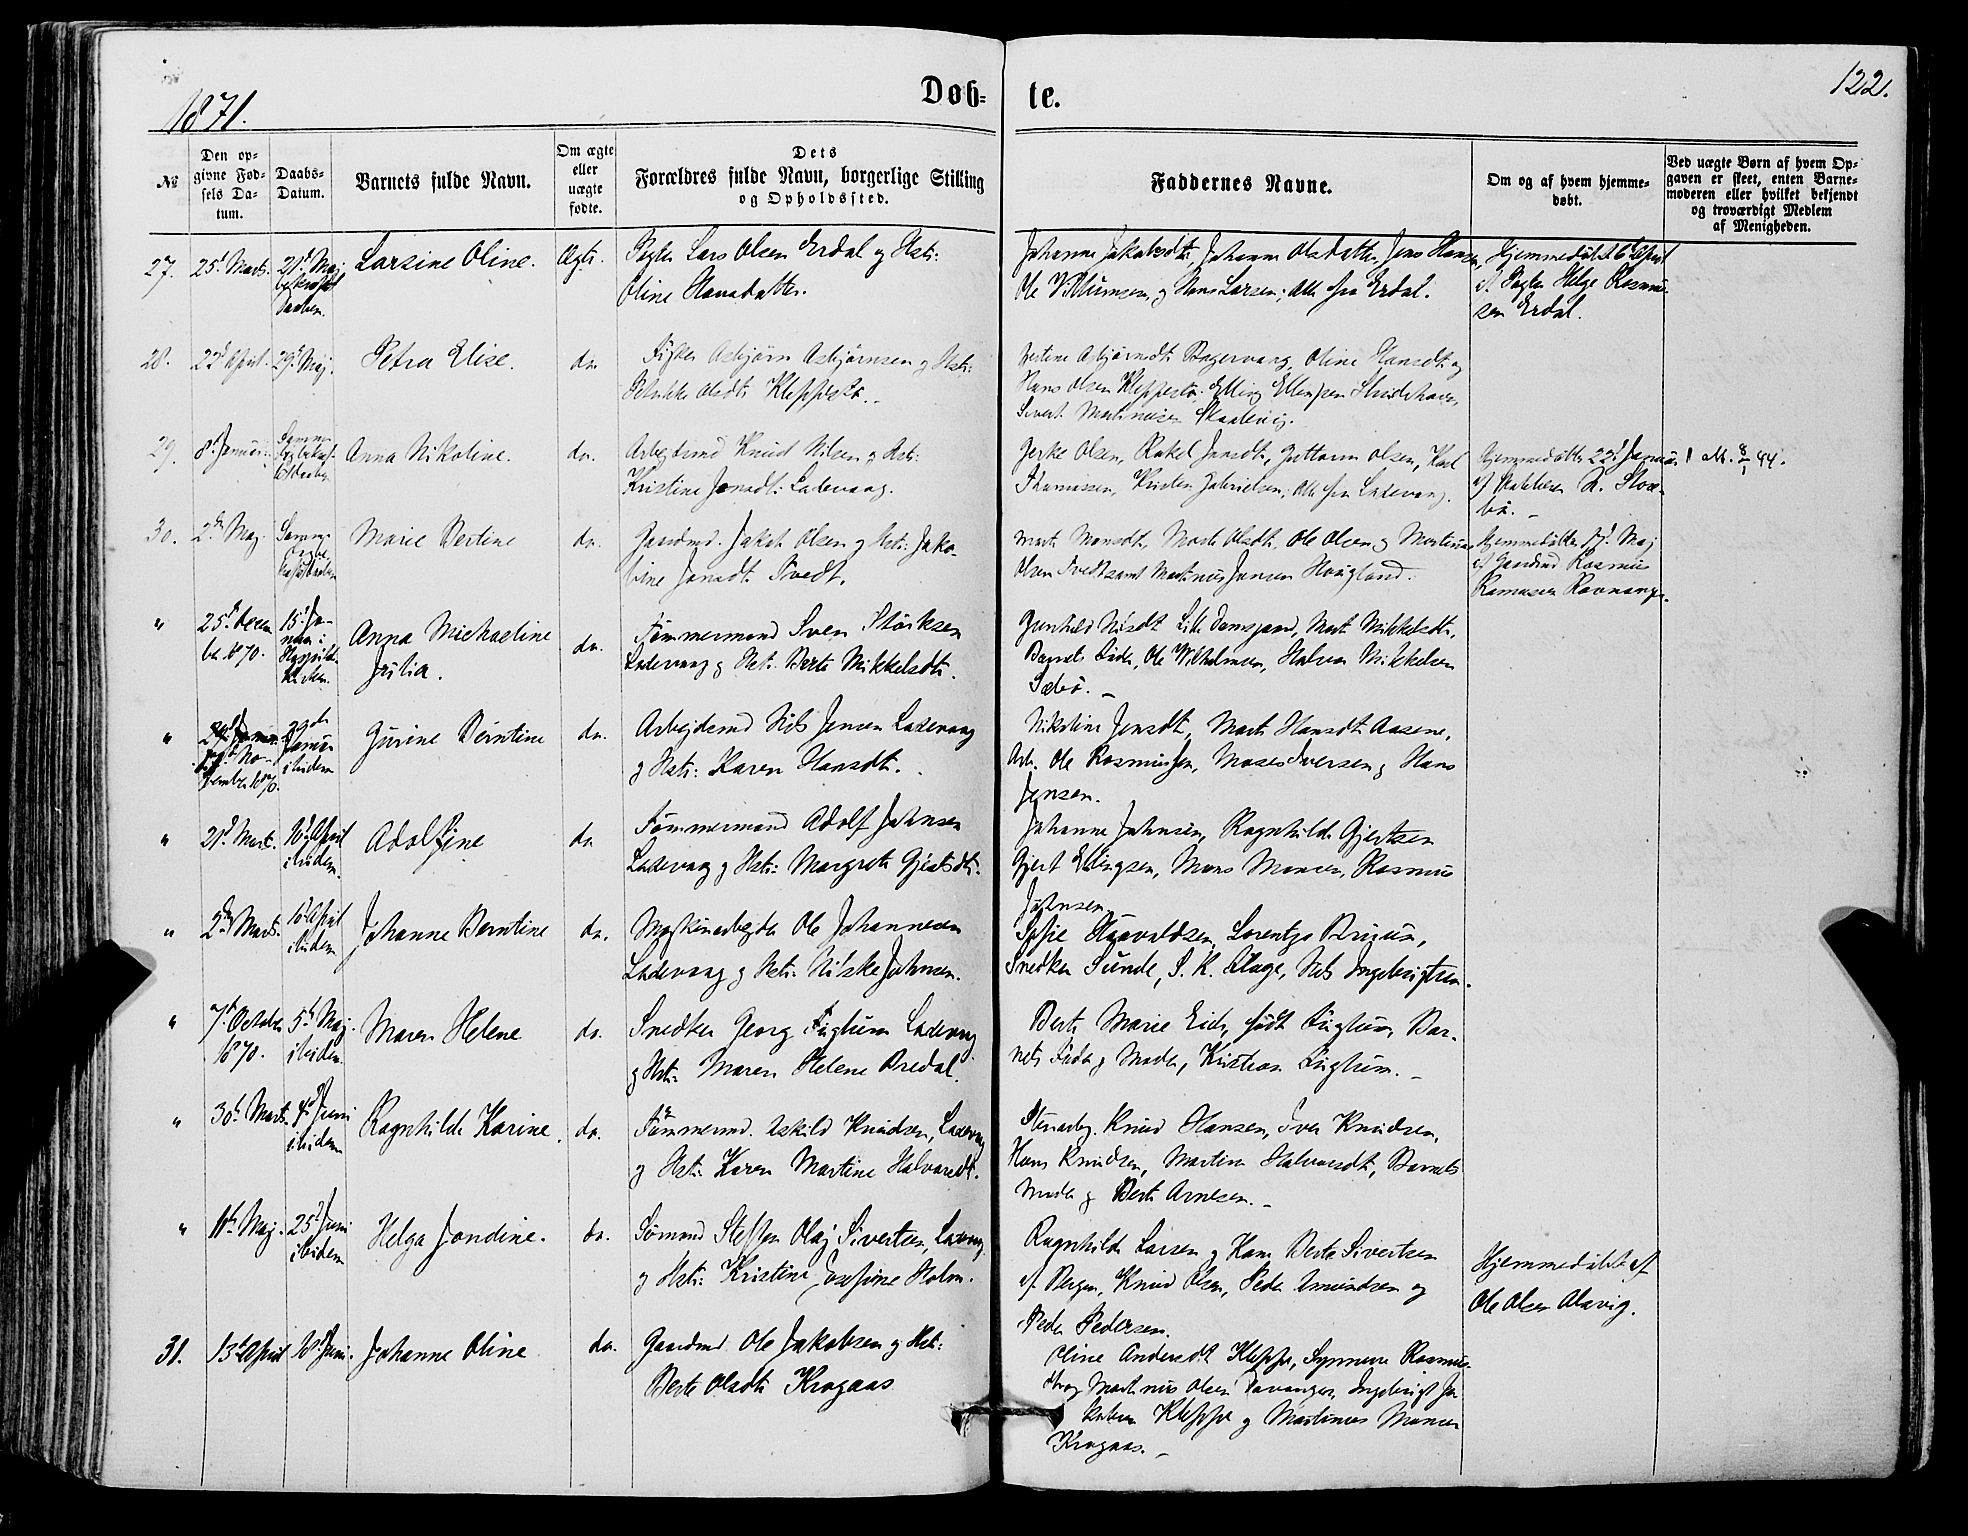 1871.
Døb-
te.
122.
№
Den op-
givne Fød-
sels Da-
tum.
Daabs-
Datum.
Barnets fulde Navn.
Om ægte
eller
uægte
fødte.
Dets
Forældres fulde Navn, borgerlige Stilling
og Opholdssted.
Faddernes Navne.
Om og af hvem hjemme-
døbt.
Ved uægte Børn af hvem Op-
gaven er skeet, enten Barne-
moderen eller hvilket bekjendt
og troværdigt Medlem
af Menigheden.
27.
25d Marts.
21d Maj
Daaben.
Larsine Oline.
Ægte.
Lars Olsen Erdal og Hstr:
Oline Hansdatter.
Johanne Jakobsdtr, Johanne Olsdatter, Jens Hansen,
Ole Villumsen, og Hans Larsen; alle fra Erdal.
Hjemmedøbt 6d April
af Helge Rasmus-
sen Erdal.
28.
22d April.
29d Maj.
Petra Elise.
do.
Asbjørn Asbjørnsen og Hstr:
Olsdtr Kleppestø.
Oline Hansdtr og
Hans Olsen Kleppestø, Elling Ellingsen
Sivert Martinusen
29.
8d Januar.
Anna Nikoline.
do.
Arbejdsmd Knud Nilsen og Hstr:
Kristine Jonsdtr: Ladevaag.
Olsen, Rakel Jonsdtr, Guttorm Olsen, Karl
Thomassen, Kristen Gabrielsen; alle fra Ladevaag.
Hjemmedøbt 22d Januar
af
bø.
30.
2den Maj.
Marie Bertine
do.
Gaardmd. Jakob Olsen og Hstr: Jako-
bine Jonsdtr Tvedt.
Marte Monsdtr, Marte Olsdtr, Ole Olsen og Martinus
Olsen Tvedt samt Martinus Jansen Hougland.
Hjemmedøbt Maj
af Gaardmd Rasmus
Rasmusen Ravnanger.
"
25d Decem-
ber 1870.
15d Ja-
nuar i
Anna Michaeline
Julia.
do.
Tømmermand Sven Størksen
Ladevaag og Hstr: Berte Mikkelsdtr.
Gunhild Nilsdtr Lille Damsgaard, Marte Mikkelsdtr,
Barnets Fader, Ole Wilhelmsen, Halvor Mikkelsen
Sæbø.
"
No-
vember 1870.
29de
Januar
ibidem
Gurine Berntine
do.
Arbejdsmd Nils Jensen Ladevaag
og Hstr: Karen Hansdtr.
Nikoline Jensdtr, Marte Hansdtr Aasene,
Arb. Ole Rasmussen, Moses Iversen og Hans
Jensen.
"
21d Marts.
10d April
ibidem.
Adolfine
do
Tømmermand Adolf Johnsen
Ladevaag og Hstr: Margrete Gjertsdtr.
Johanne Johnsen, Ragnhilde Gjertsen
Gjert Ellingsen, Mons Monsen, Rasmus
Johnsen.
"
2den Marts.
10d April
ibidem.
Johanne Berntine
do.
Maskinarbejder Ole Johannesen
Ladevaag og Hstr: Nilske Johnsen.
Sofie Haavaldsen, Lorentze
Snedker Sunde, S. K. Nils Ingebrigtsen.
"
7d October
1870.
5d Maj.
ibidem.
Maren Helene
do.
Snedker Georg Fuglum Ladevaag
og Hstr: Maren Helene Bredal.
Berte Marie Eide, født Fuglum, Bar-
nets Fader og Moder, Kristian Fuglum.
"
30d Marts.
4d Juni
ibidem
Ragnhilde Karine.
do.
Tømmermd. Askild Knudsen, Ladevaag
og Hstr: Karen Martine Halvorsdtr.
Stenarbej. Knud Hansen, Iver Knudsen,
Hans Knudsen, Martine Halvorsdtr, Barnets
Moder og Berte Arnesen.
"
11te Maj.
25d Juni
ibidem
Helga Jondine.
do.
Sømand Steffen Olaj Sivertsen, Ladevaag
og Hstr: Kristine Josefine Holm.
Ragnhilde Larsen og Hans Berte Sivertsen
af Bergen, Knud Olsen, Peder Amundsen og
Peder Pedersen.
Hjemmedøbt af
Ole Olsen Alavig.
31.
13d April
18d Juni.
Johanne Oline
do.
Gaardmd Ole Jakobsen og Hstr:
Berte Olsdtr Krogaas
Oline Andersdtr Kleppe, Synneve Rasmus-
dtr og Martinus Olsen Davanger, Ingebrigt Ja-
kobsen Kleppe og Martinus Monsen
Krogaas.